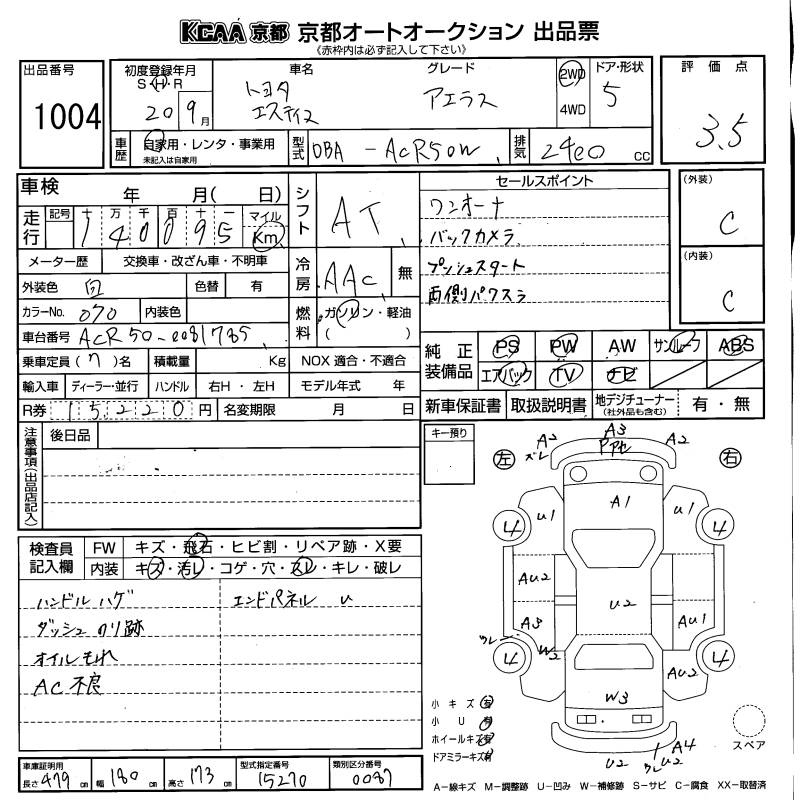 KCAA 京都 京都オートオークション 出品票
《赤枠内は必ず記入して下さい》
出品番号 1004
初度登録年月 S・H・R 20 9月
車名 トヨタ エスティマ
グレード アエラス
2WD 4WD
ドア・形状 5
評価点 3.5
車歴 自家用・レンタ・事業用 未記入は自家用
型式 DBA-ACR50W
排気 2400 cc
車検 年 月( 日)
シフト AT
セールスポイント
ワンオーナ
バックカメラ
プッシュスタート
両側パワスラ
(外装) C
(内装) C
走行 記号 十 万 千 百 十 一 マイル Km
140095
メーター歴 交換車・改ざん車・不明車
冷房 AAC 無
外装色 白 色替 有
カラーNo. 070 内装色
燃料 ガソリン・軽油 ( )
車台番号 ACR50-0081785
乗車定員(7)名 積載量 Kg NOX適合・不適合
輸入車 ディーラー・並行 ハンドル 右H・左H モデル年式 年
R券 15220円 名変期限 月 日
純正装備品 PS PW AW サンルーフ ABS
エアバック TV ナビ
新車保証書 取扱説明書 地デジチューナー (社外品も含む) 有・無
注意事項(出品店記入) 後日品
キー預り
左 右
A2 ズレ A3 Pアセ A2
A1
U1 U1
4 4
AU2 U2
A3 AU1
ワレ W2
4 AU2 4
W3
U2 ワレ U2 A4
検査員記入欄 FW キズ・飛石・ヒビ割・リペア跡・X要
内装 キズ・汚レ・コゲ・穴・スレ・キレ・破レ
ハンドルハゲ エンドパネル U
ダッシュ のり跡
オイルもれ
AC不良
小キズ 有
小U 有
ホイールキズ 有
ドアミラーキズ 有
スペア
車庫証明用 長さ 479cm 幅 180cm 高さ 173cm
型式指定番号 15270
類別区分番号 0087
A-線キズ M-調整跡 U-凹み W-補修跡 S-サビ C-腐食 XX-取替済